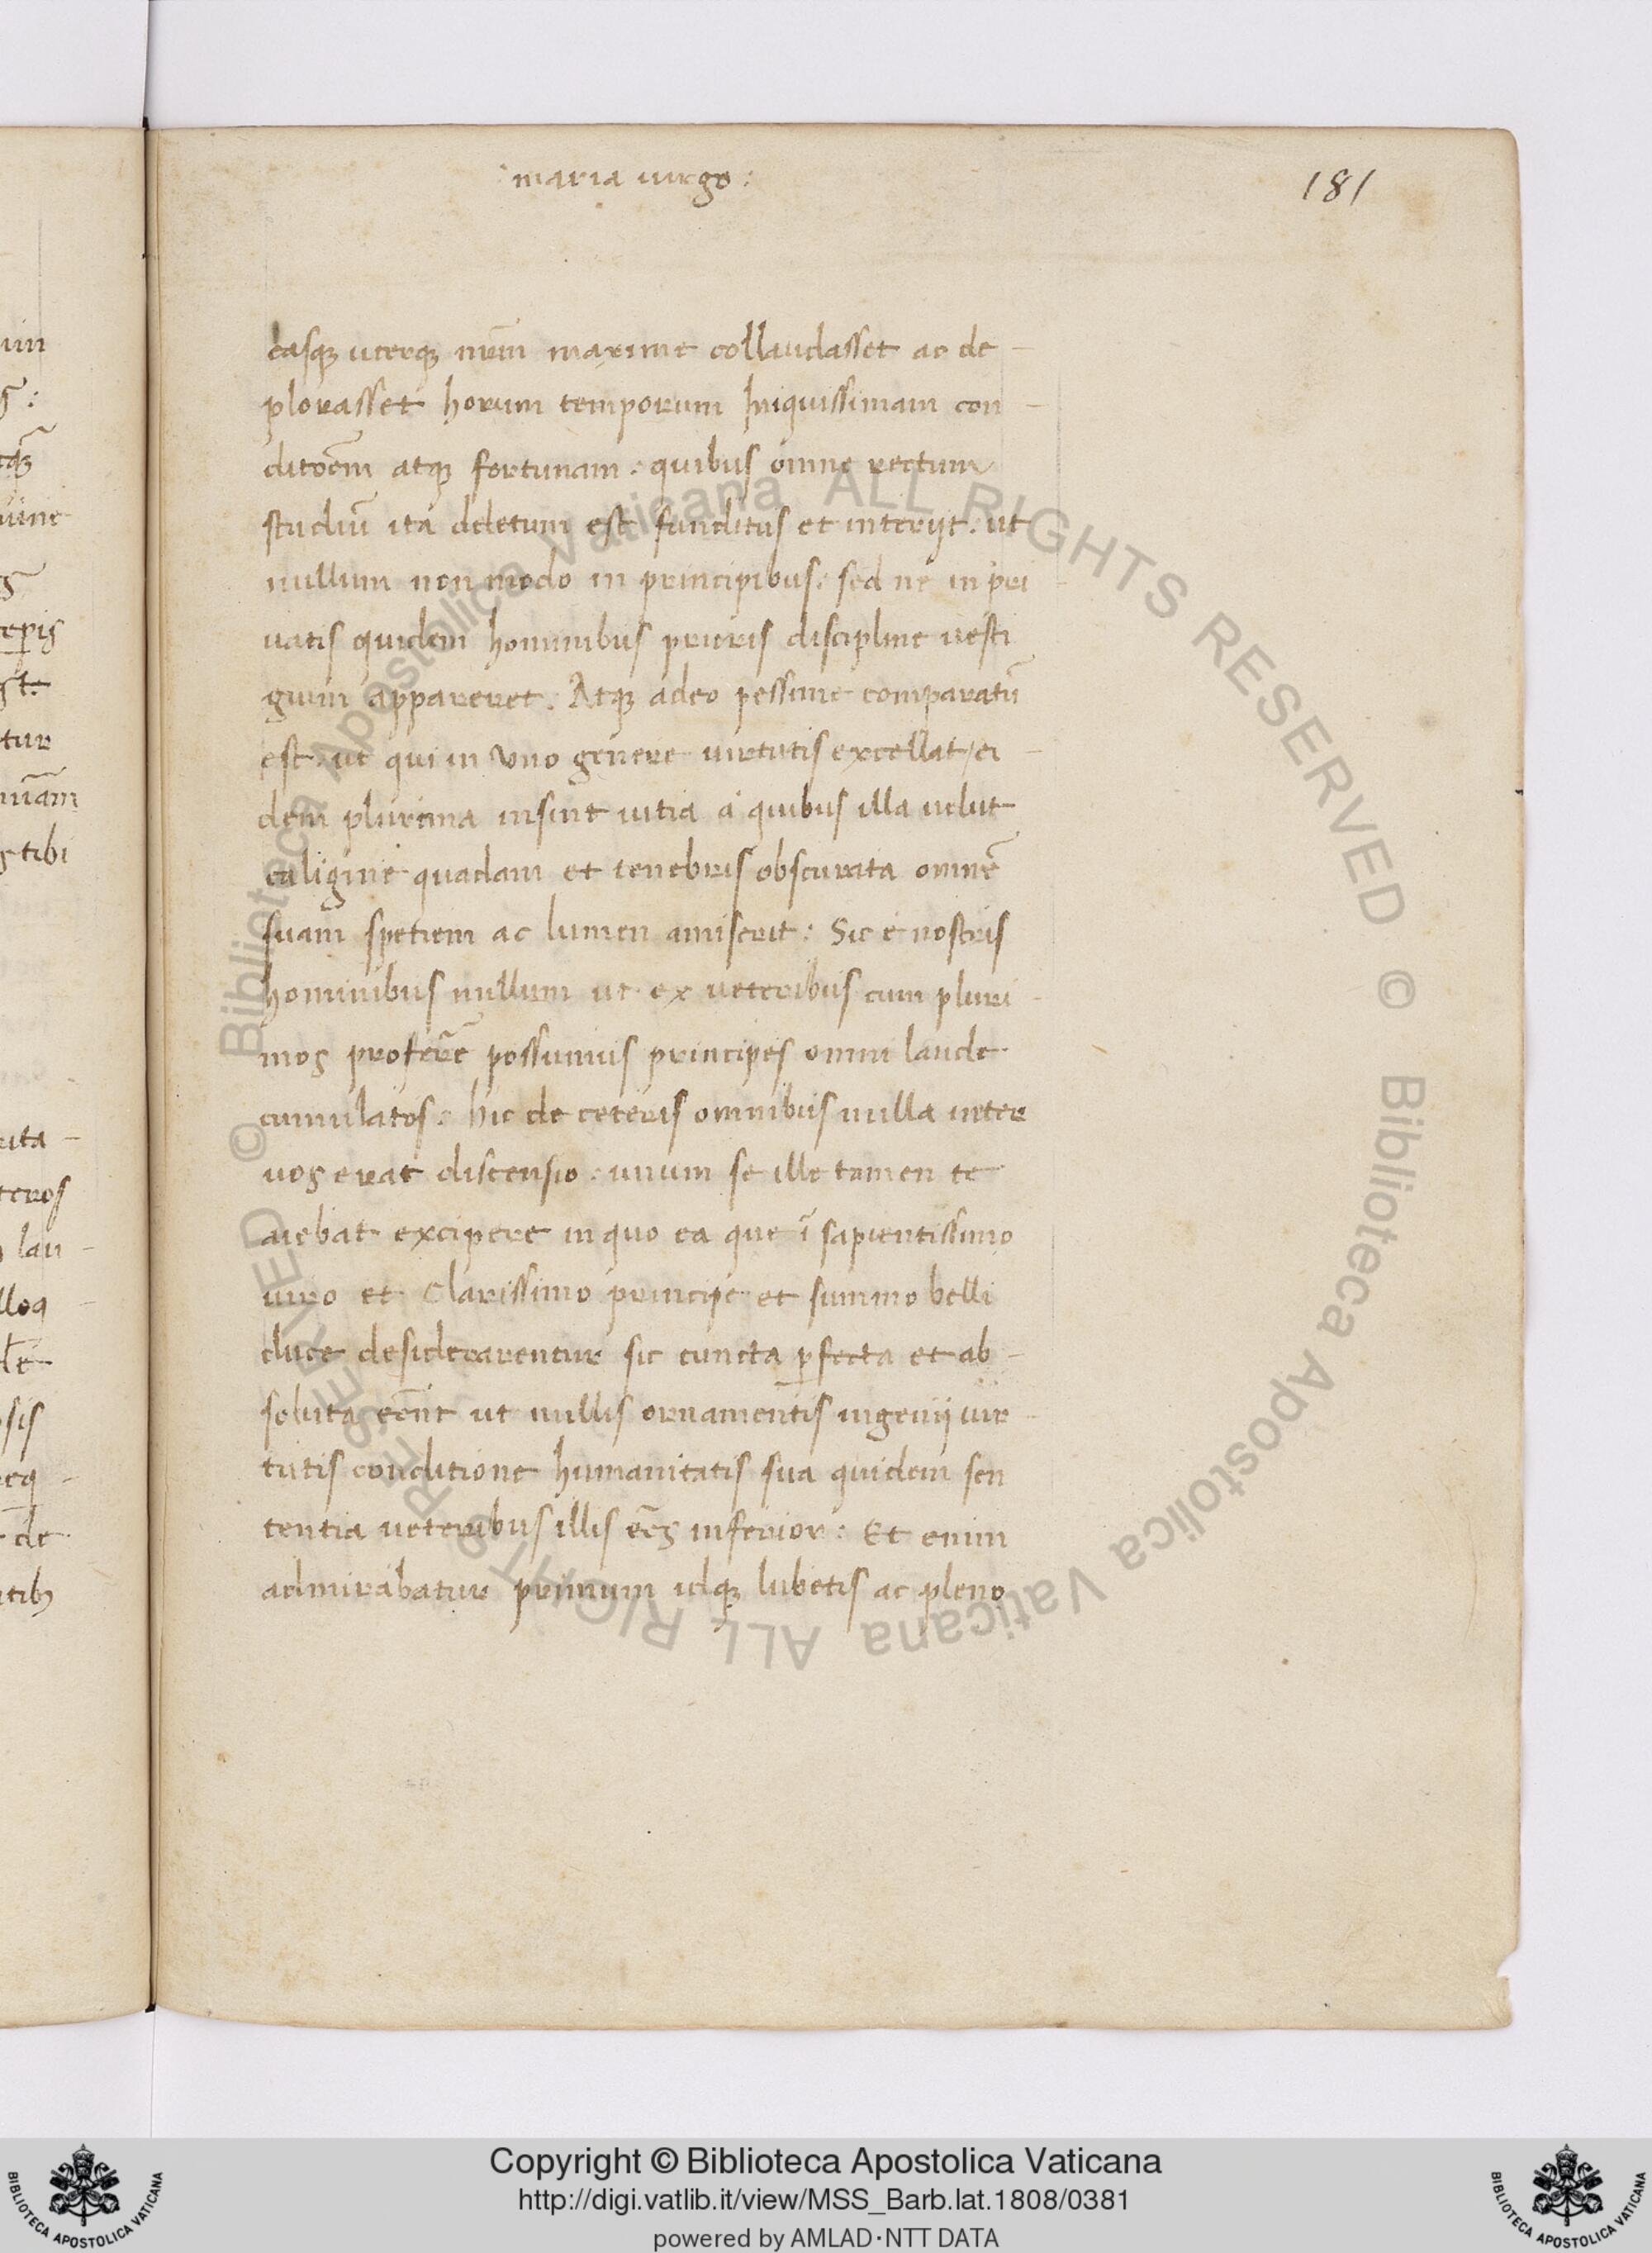 : maria uirgo :
181
easqꝫ uterqꝫ nr̄m maxime collaudasset ac de -
plorasset horum temporum Iniquissimam con -
ditōem atqꝫ fortunam : quibus omne rectum
studiū ita deletum est funditus et interijt : ut
nullum non modo in principibus : sed ne in pri -
uatis quidem hominibus prioris discipline uesti
gium appareret . Atqꝫ adeo pessime comparatū
est ut qui in uno genere uirtutis excellat / ei -
dem plurima insint uitia a quibus illa uelut
caligine quadam et tenebris obscurata omnē
suam spetiem ac lumen amiserit : Sic e nostris
hominibus nullum ut ex ueteribus cum pluri -
mos proferre possumus principes omni laude
cumulatos : hic de ceteris omnibus nulla inter
uos erat discensio : unum se ille tamen te
aiebat excipere in quo ea que ī sapientissimo
uiro et Clarissimo principe et summo belli
duce desiderarentur sic cuncta ꝑfecta et ab -
soluta eēnt ut nullis ornamentis ingenij uir -
tutis conditione humanitatis sua quidem sen
tentia ueteribus illis eēs inferior : Et enim
admirabatur primum idqꝫ lubetis ac pleno
uin
s :
tqꝫ
uine
epis
tur
nūam
s tibi
rita -
teros
lau -
lloq -
sis
eq -
de
tibꝫ
© Biblioteca Apostolica Vaticana ALL RIGHTS RESERVED © Biblioteca Apostolica Vaticana ALL RIGHTS RESERVED
Copyright © Biblioteca Apostolica Vaticana
http://digi.vatlib.it/view/MSS_Barb.lat.1808/0381
powered by AMLAD·NTT DATA
BIBLIOTECA APOSTOLICA VATICANA
BIBLIOTECA APOSTOLICA VATICANA